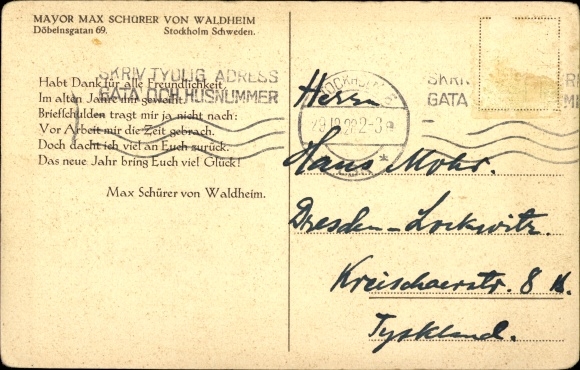 MAYOR MAX SCHÜRER VON WALDHEIM
Döbelnsgatan 69. Stockholm Schweden.
SKRIV TYDLIG ADRESS
GATA OCH HUSNUMMER
Habt Dank für alle Freundlichkeit,
Im alten Jahre mir geweiht.
Briefschulden tragt mir ja nicht nach:
Vor Arbeit mir die Zeit gebrach.
Doch dacht ich viel an Euch zurück.
Das neue Jahr bring Euch viel Glück!
Max Schürer von Waldheim.
STOCKHOLM
SKRI
GATA
Herrn
Hans Mohr.
Dresden-Lockwitz.
Kreischaerstr. 8
Tyskland.